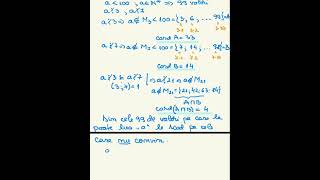 a < 100, a ∈ N* => 99 valori
a⋮̸3, a⋮̸7
a⋮̸3 => a ∉ M₃ < 100 = {3, 6, ... 99} = A
3·1 3·2 3·33
card A = 33
a⋮̸7 => a ∉ M₇ < 100 = {7, 14, ... 98} = B
7·1 7·2 7·14
card B = 14
a⋮̸3 și a⋮̸7 | => a⋮̸21 => a ∉ M₂₁
(3;7)=1 M₂₁ = {21, 42, 63, 84}
A∩B
card(A∩B) = 4
Din cele 99 de valori pe care le
poate lua "a" le scad pe cele
care nu convin